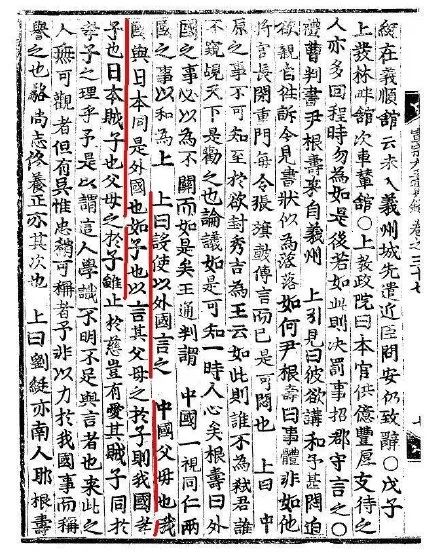 卷之三十七
綏在義順館云未入義州城先遣近臣問安仍致辭○戊子
上發林畔館次車輦館○上教政院曰本官供億豐厚支待之
人亦多回程時勿為如是後若如此則決罰事招郡守言之○
禮曹判書尹根壽來自義州　上引見曰彼欲講和乎甚悶迫
欲親官徃訴今見書狀似為落落如何尹根壽曰事體非如他
將官長閉重門每令張旗鼓傳言而已是可悶也　上曰中
原之事不可知至於欲封秀吉為王云如此則誰不為弒君誰
不窺覘天下是勸之也論議如是可知一時人心矣根壽曰外
國之事必以為不關而如是矣王通判謂　中國一視同仁兩
國之事以和為上　上曰設使以外國言之　中國父母也我
國與日本同是外國也如子也以言其父母之於子則我國孝
子也日本賊子也父母之於子雖止於慈豈有愛其賊子同於
孝子之理乎予是以謂這人學識不明不足與言者也來此之
人無可觀者但有吳惟忠稍可稱者予非以力於我國事而稱
譽之也駱尚志佟養正亦其次也　上曰劉綎亦南人耶根壽